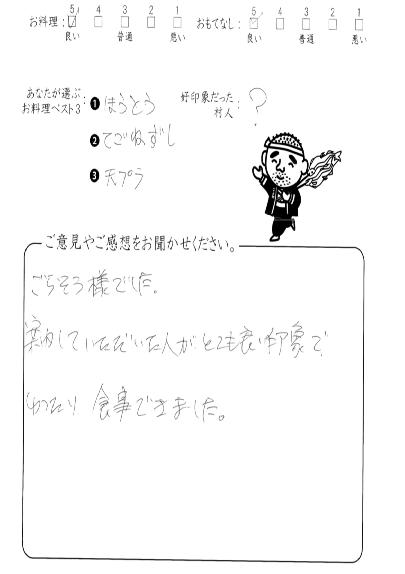 お料理: 5 4 3 2 1 おもてなし: 5 4 3 2 1
良い 普通 悪い 良い 普通 悪い
あなたが選ぶ お料理ベスト3: ❶ ほうとう
❷ てごねずし
❸ 天プラ
好印象だった 村人: ?
ご意見やご感想をお聞かせください。
ごちそう様でした。
案内していただいた人がとても良い印象で
ゆったり 食事できました。